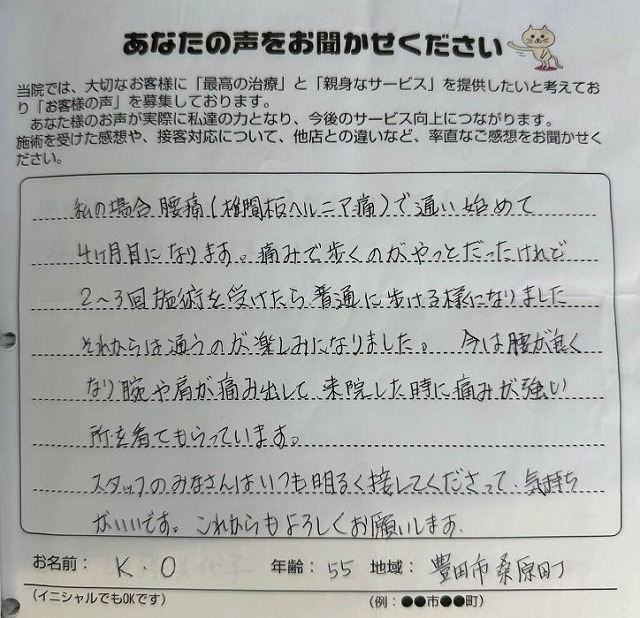 あなたの声をお聞かせください
当院では、大切なお客様に「最高の治療」と「親身なサービス」を提供したいと考えてお
り「お客様の声」を募集しております。
あなた様のお声が実際に私達の力となり、今後のサービス向上につながります。
施術を受けた感想や、接客対応について、他店との違いなど、率直なご感想をお聞かせく
ださい。
私の場合腰痛(椎間板ヘルニア痛)で通い始めて
4ヶ月目になります。痛みで歩くのがやっとだったけれど
2～3回施術を受けたら普通に歩ける様になりました
それからは通うのが楽しみになりました。 今は腰が良く
なり腕や肩が痛み出して、来院した時に痛みが強い
所を看てもらっています。
スタッフのみなさんはいつも明るく接してくださって、気持ち
がいいです。これからもよろしくお願いします.
お名前： K.O 年齢： 55 地域： 豊田市桑原町
(イニシャルでもOKです) (例：●●市●●町)